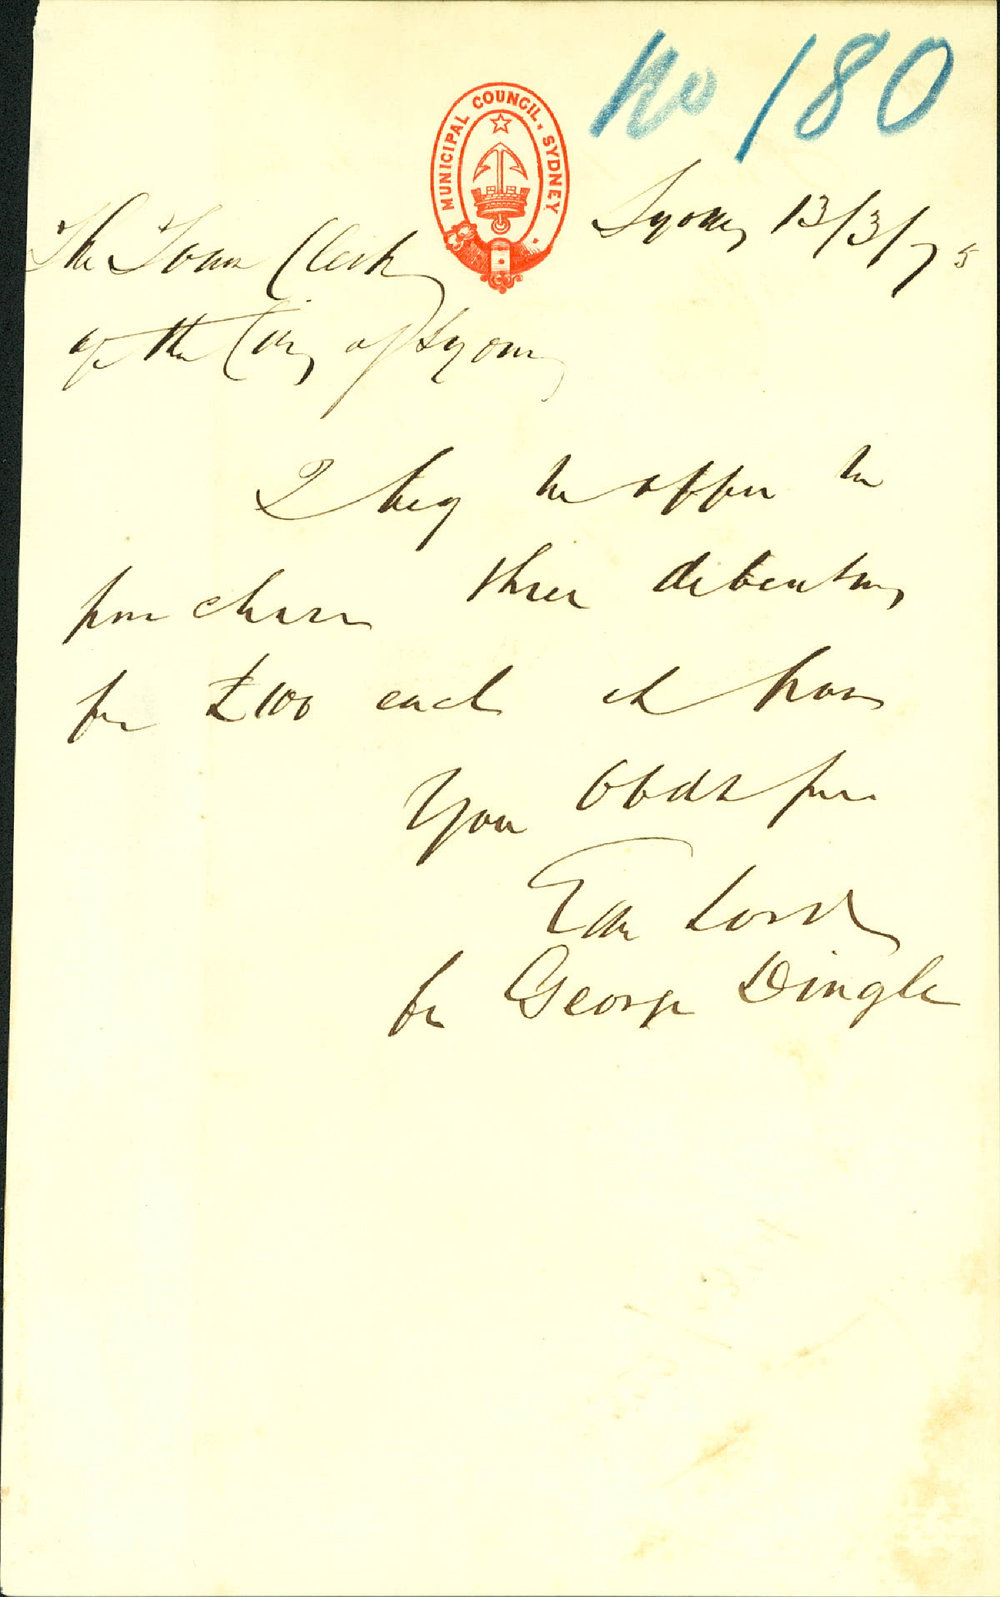 No 180
MUNICIPAL COUNCIL, SYDNEY
Sydney 13/3/75
The Town Clerk
of the City of Sydney
I beg to offer to
purchase three debentures
for £100 each at par
Your Obdt ser
Edw Lord
for George Dingle